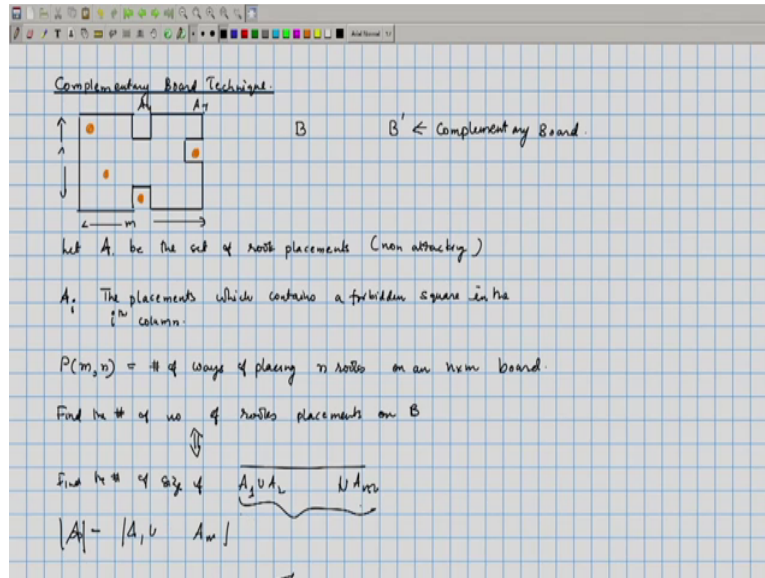 Complementary Board Technique.
A4 A7
B B' ← Complementary Board.
m
Let A, be the set of rook placements (non attacking)
Ai The placements which contains a forbidden square in the
ith column.
P(m,n) = # of ways of placing n rooks on an nxm board.
Find the # of no of rooks placements on B
⇕
Find the # of size of A1 ∪ A2 ∪ Am
|A| - |A1 ∪ Am|